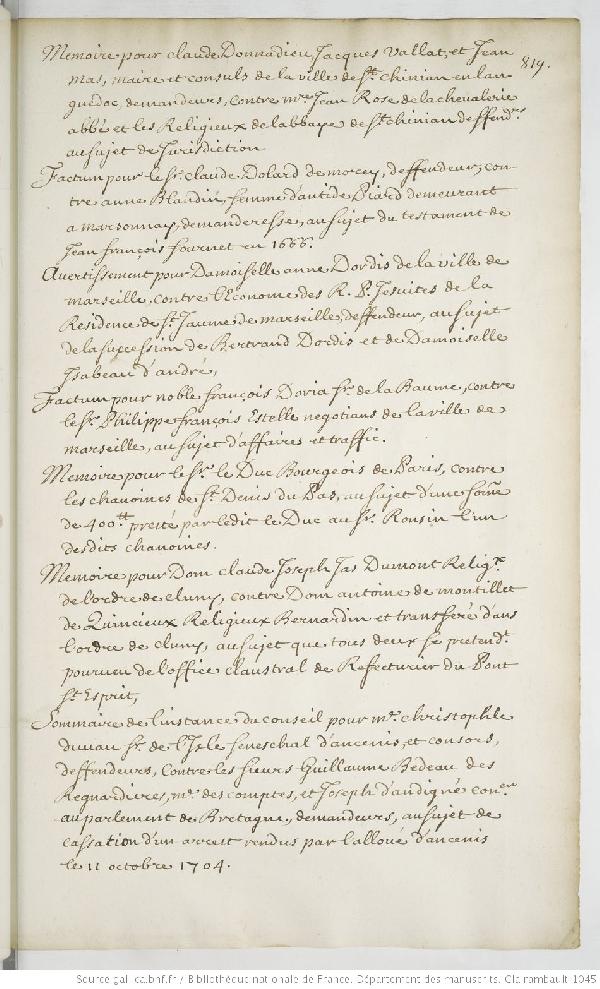 819.
Memoire pour claude Donnadieu, Jacques Vallat, et Jean
mas, maire et consuls de la ville de St. chinian en lan-
guedoc, demandeurs, contre mre. Jean Rose de la chevalerie
abbé et les Religieux de labbaye de St. chinian deffendrs.
au sujet de Jurisdiction
Factum pour le Sr. claude Dolard de morcey, deffendeur, con-
tre anne Blandin, femme d'antide Piard demeurant
a marsonnay, demanderesse, au sujet du testament de
Jean françois fournet en 1666.
Avertissement pour Damoiselle anne Dordis de la ville de
marseille, contre l'Econome des R. P. Jesuites de la
Residence de St. Jaume de marseille, deffendeur, au sujet
de la supcession de Bertrand Dordis et de Damoiselle
Isabeau d'andré,
Factum pour noble françois Doria Sr. de la Baume, contre
le Sr. Philippe françois Estelle negotians de la ville de
marseille, au sujet d'affaires et traffic.
Memoire pour le Sr. le Duc Bourgeois de Paris, contre
les chanoines de St. Denis du Pas, au sujet d'une some
de 400tt presté par ledit le Duc au Sr. Ronsin l'un
desdits chanoines.
Memoire pour Dom claude Joseph Jas Dumont Religx.
de l'ordre de cluny, contre Dom antoine de montillet
de Quincieux Religieux Bernardin et transferé dans
l'ordre de cluny, au sujet que tous deux se pretendt.
pourveu de l'office claustral de Refecturier du Pont
St. Esprit,
Sommaire de l'instance du conseil pour mr. christophle
duvau Sr. de l'Isle seneschal d'ancenis, et consors,
deffendeurs, contre les sieurs Guillaume Bedeau des
Regnardieres, mr. des comptes, et Joseph d'andigné coner.
au parlement de Bretagne, demandeurs, au sujet de
cassation d'un arrest rendus par l'alloué d'ancenis
le 11 octobre 1704.
Source gallica.bnf.fr / Bibliothèque nationale de France. Département des manuscrits. Clairambault 1045